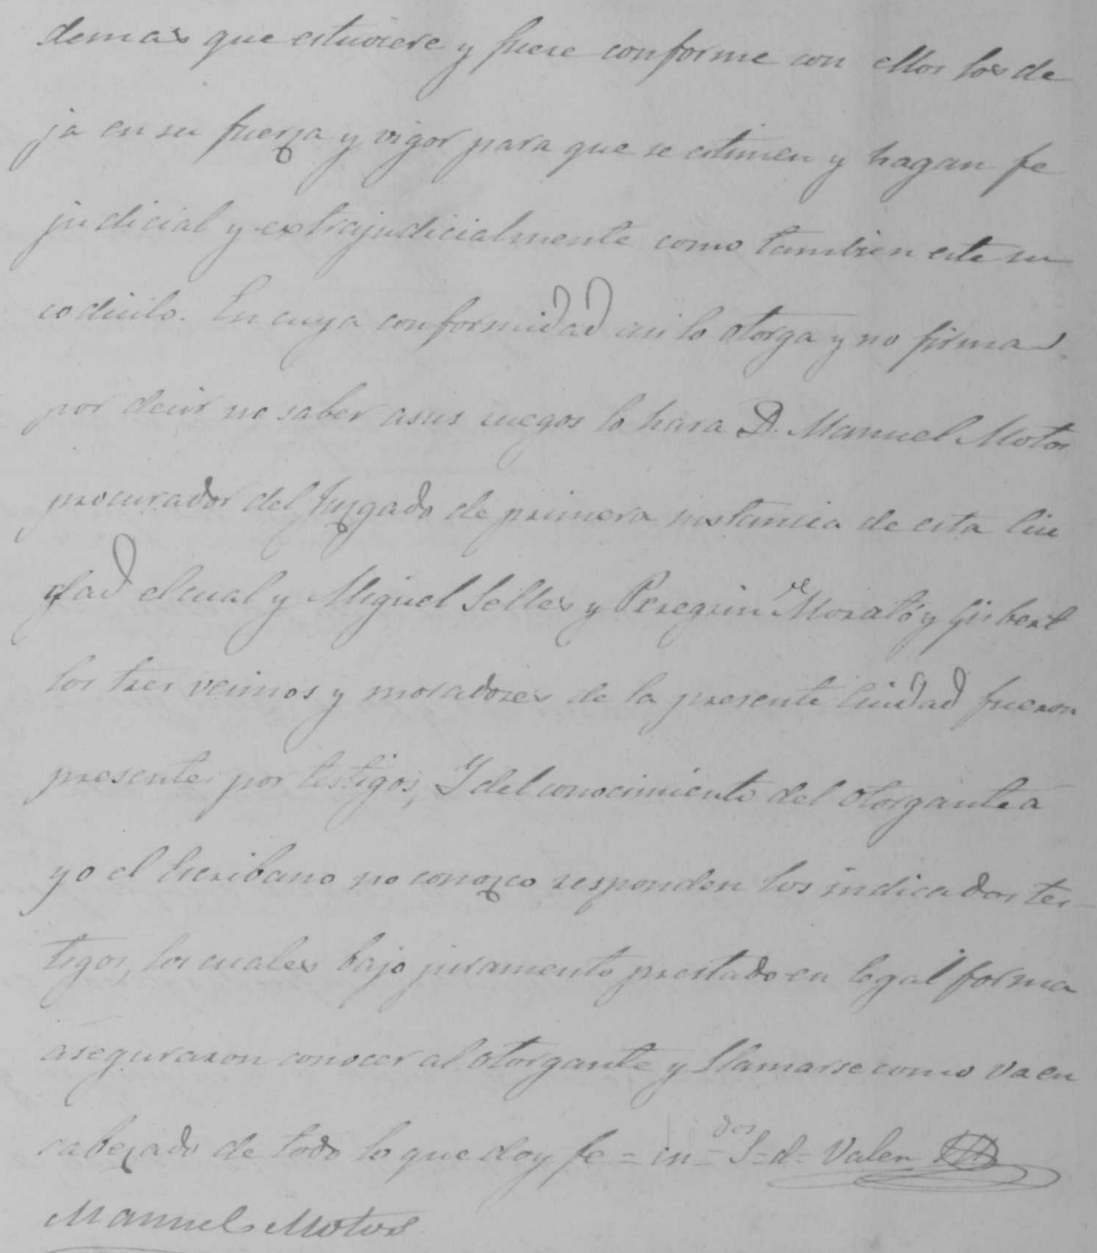 demas que estuviere y fuere conforme con ellos los de
ja en su fuerza y vigor para que se estimen y hagan fe
judicial y extrajudicialmente como tambien este su
codicilo. En cuya conformidad asi lo otorga y no firma
por decir no saber asus ruegos lo hara D. Manuel Motos
procurador del Juzgado de primera instancia de esta Ciu
dad el cual y Miguel Selles y Peregrin Morató y Gisbert
los tres vecinos y moradores de la presente Ciudad fueron
presentes por testigos, Y del conocimiento del otorgante á
yo el Escribano no conozco responden los indicados tes-
tigos, los cuales bajo juramento prestado en legal forma
aseguraron conocer al otorgante y llamarse como va en
cabezado de todo lo que doy fe = in = dos S = d = Valen
Manuel Motos